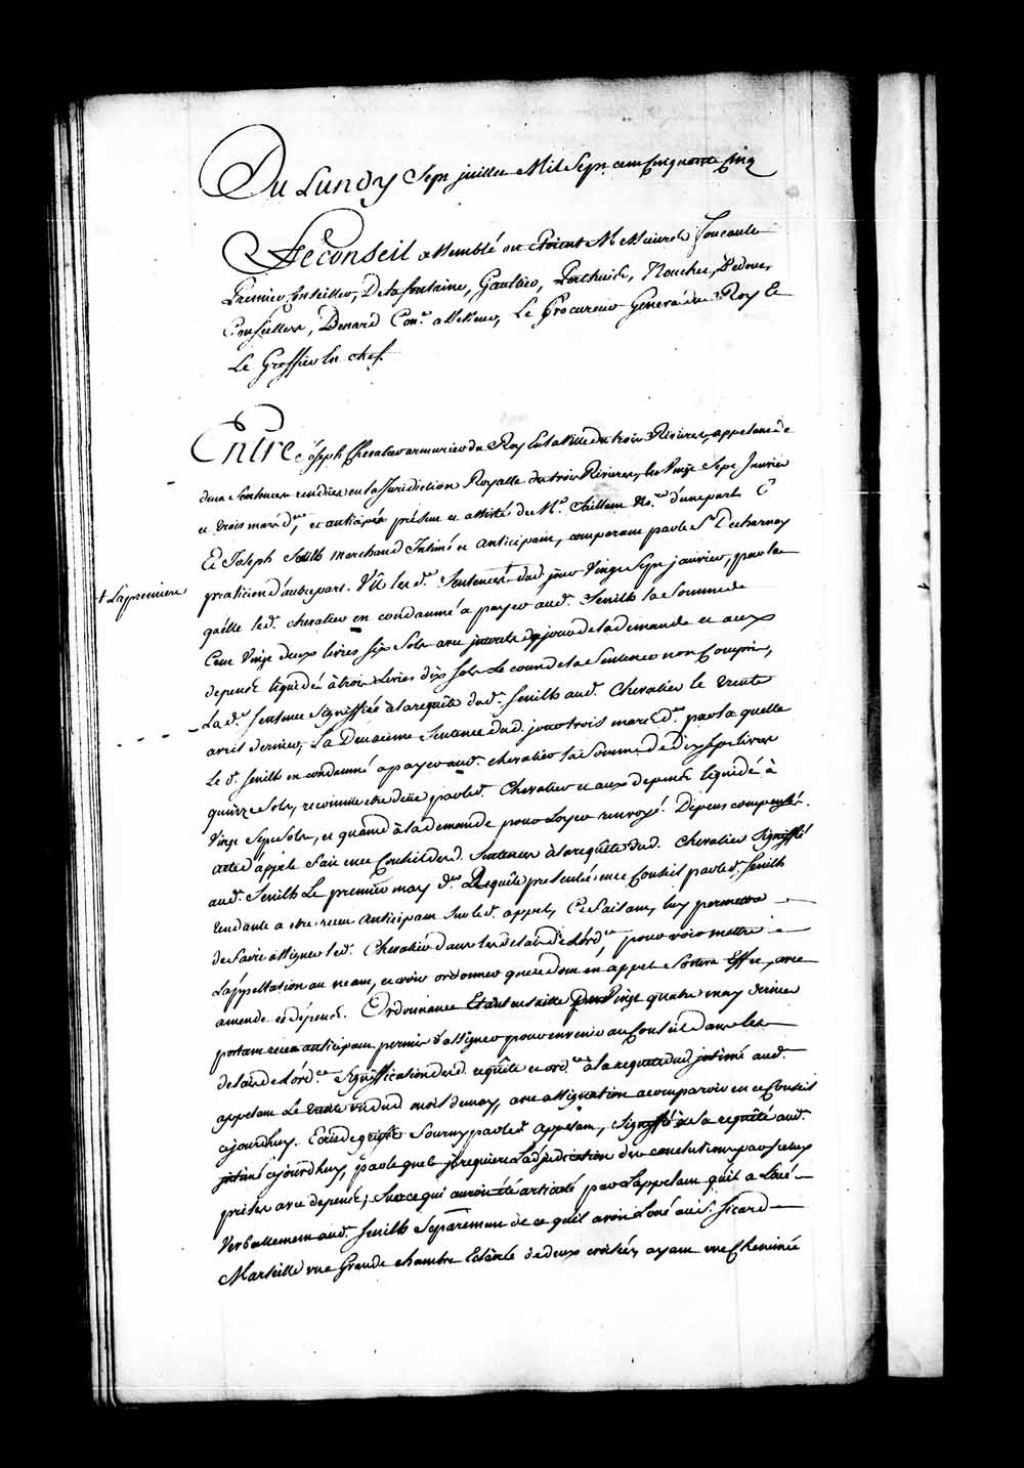 Du Lundy Sept juillet Mil Sept cent Cinquante Cinq
Le Conseil assemblé ou Etoient Messieurs foucault
Premier Conseiller, Delafontaine, Gaultier, Guillimin, Nouchet,
Conseillers, Benard Con.er assesseur, Le Procureur General du Roy Et
Le Greffier En chef.
Entre Joseph Chevalier armurier du Roy En la Ville des trois Rivieres, appelant de
deux Sentences rendües en la Jurisdiction Royalle des trois Rivieres, les Vingt Sept Janvier
et trois mars d.er, et anticipé présent et assisté de M.e Saillant No.re d'une part Et
Et Joseph Senilh Marchand Intimé et anticipant, comparant par le S.r Decharnay
praticien d'autre part. Vû les d. Sentences † dud. jour Vingt Sept janvier, par la
† La premiere
quelle led. chevalier est condamné a payer aud. Senilh la Somme de
Cent Vingt deux livres Six Sols avec interests du jour de la demande et aux
depens liquidés à trois Livres dix Sols Le cout de la Sentence non Compris,
La d. Sentence Signiffiée à la requête dud. Senilh aud. Chevalier le trente
avril dernier, La Deuxieme Sentence dud. jour trois mars d.er par la quelle
Le d. Senilh est condamné a payer aud. chevalier la Somme de Dix Sept livres
quinze Sols, reconnüe être deüe par led. Chevalier et aux depens liquidé à
Vingt Sept Sols, et quand à la demande pour Loyer renvoyé. Dépens compensés.
acte d'appel fait en ce Conseil desd. Sentences à la requête dud. Chevalier Signiffié
aud. Senilh Le premier may d.er Requête presentée en ce Conseil par led. Senilh
tendante a etre receu Anticipant Sur led. appel, Ce faisant, luy permettre
de faire assigner led. Chevalier dans les delais de L'ord.ce pour voir mettre
L'appellation au neant, et voir ordonner que ce dont est appel Sortira Effet, avec
amende et dépens. Ordonnance Etant ensuitte Du Vingt quatre may dernier
portant receu anticipant permis d'assigner pour en venir au Conseil dans les
delais de L'ord.ce Signiffication desd. requête et ord.ce à la requête dud. intimé aud.
appelant Le trente dud. mois de may, avec assignation a comparoir en ce Conseil
cejourdhuy. Ecrit de griefs fourny par led. appelant, Signiffié à sa requête aud.
intimé cejourdhuy, par lequel il requiert L'adjudication des conclusions par luy
prises avec depens; Sur ce qui auroit été articulé par L'appelant qu'il a Loué
Verballement aud. Senilh Séparement de ce qu'il avoit Loué au S.r Sicard
Marseille une Grande chambre Eclairée de deux croisées, ayant une Cheminée